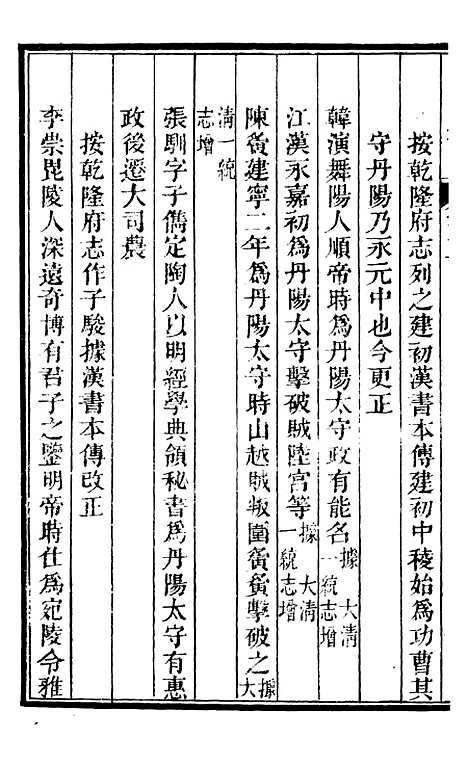 按乾隆府志列之建初漢書本傳建初中稜始為功曹其
守丹陽乃永元中也今更正
韓演舞陽人順帝時為丹陽太守政有能名據大清一統志增
江漢永嘉初為丹陽太守擊破賊陸宮等據大清一統志增
陳夤建寧二年為丹陽太守時山越賊叛圍夤夤擊破之據大
清一統志增
張馴字子儁定陶人以明經學典領秘書為丹陽太守有惠
政後遷大司農
按乾隆府志作子駿據漢書本傳改正
李崇毘陵人深遠奇博有君子之鑒明帝時仕為宛陵令雅